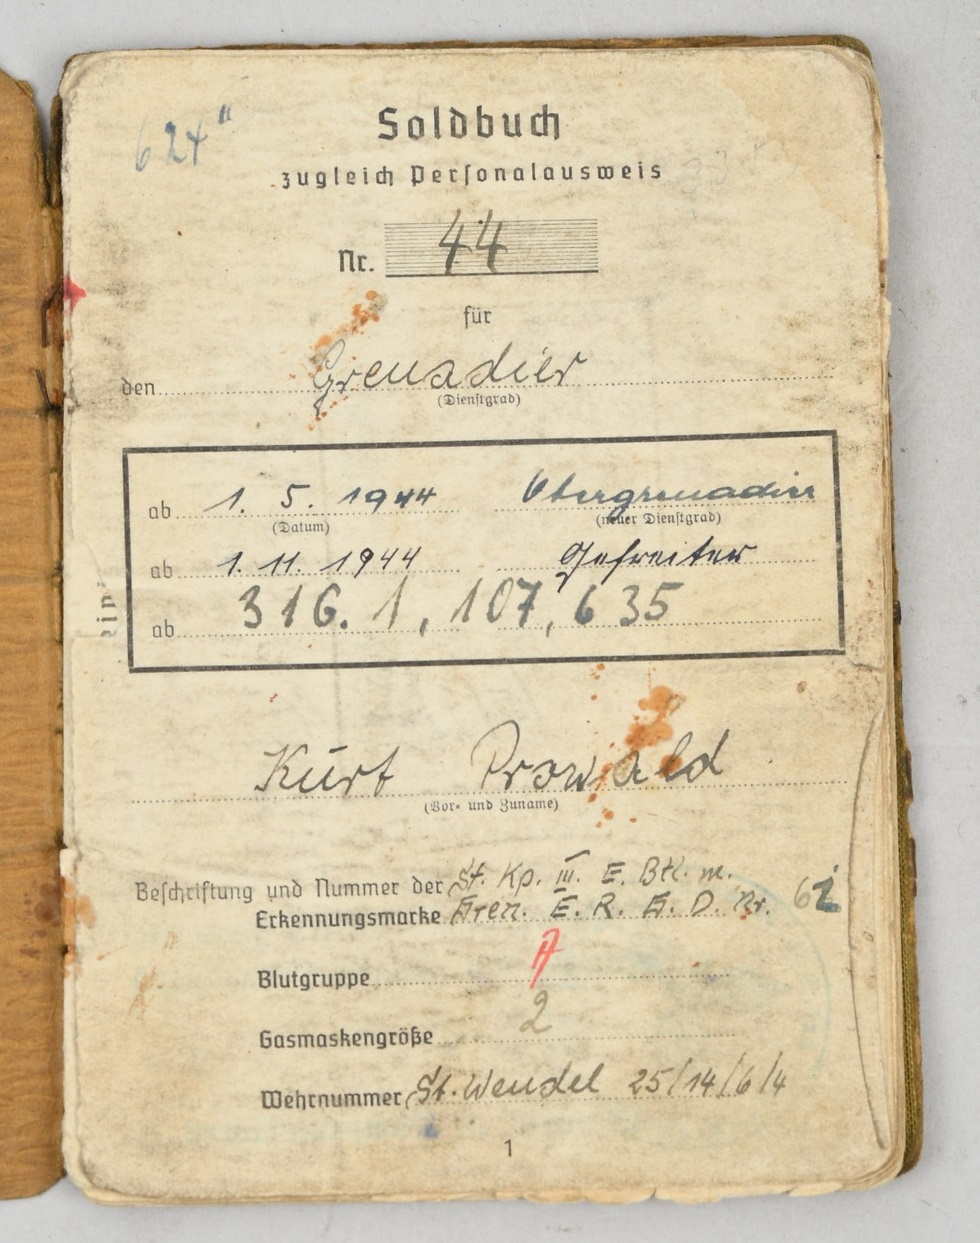 624"
Soldbuch
zugleich Personalausweis
Nr. 44
für
den Grenadier
(Dienstgrad)
ab 1. 5. 1944 Obergrenadier
(Datum) (neuer Dienstgrad)
ab 1. 11. 1944 Gefreiter
ab 316. 1, 107, 635
Kurt Prowald
(Vor- und Zuname)
Beschriftung und Nummer der St. Kp. III. E. Btl. m.
Erkennungsmarke Gren. E. R. G. D. Nr. 62
Blutgruppe A
Gasmaskengröße 2
Wehrnummer St. Wendel 25/14/6/4
1